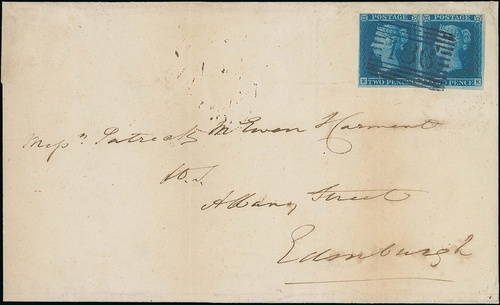 POSTAGE POSTAGE
TWO PENCE PENCE
Messrs Patrick McEwen & Carment
W.S.
Albany Street
Edinburgh